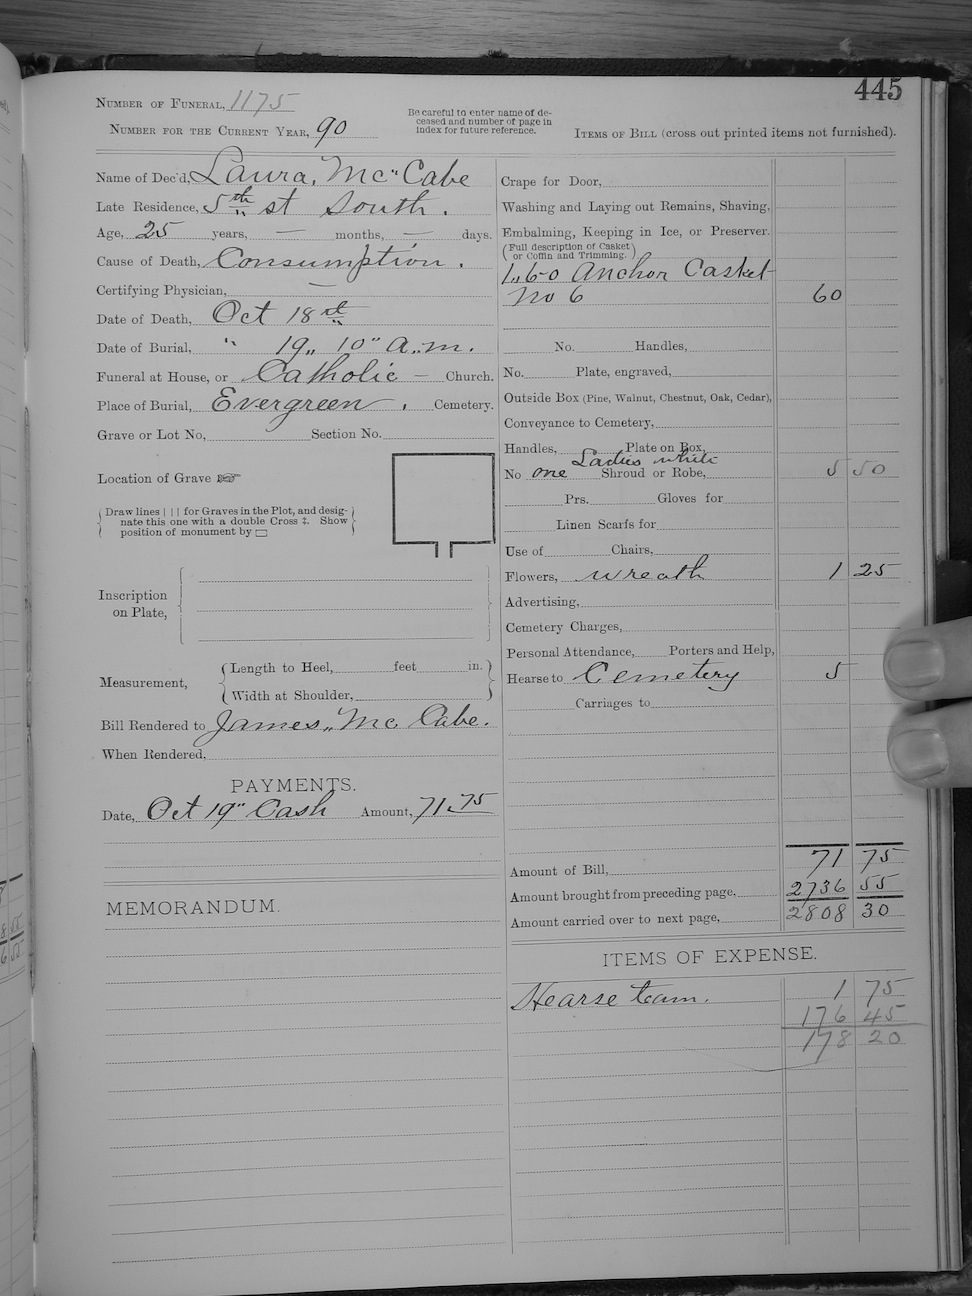 445
Number of Funeral, 1175
Number for the Current Year, 90
Be careful to enter name of de-
ceased and number of page in
index for future reference.
Items of Bill (cross out printed items not furnished).
Name of Dec'd, Laura, McCabe
Late Residence, 5th st South.
Age, 25 years, — months, — days.
Cause of Death, Consumption.
Certifying Physician, —
Date of Death, Oct 18st
Date of Burial, " 19,, 10" a.,m.
Funeral at House, or Catholic — Church.
Place of Burial, Evergreen, Cemetery.
Grave or Lot No, Section No.
Location of Grave ☞
Draw lines | | | for Graves in the Plot, and desig-
nate this one with a double Cross ‡. Show
position of monument by ▭
Inscription
on Plate,
Measurement,
Length to Heel, feet in.
Width at Shoulder,
Bill Rendered to James,, Mc Cabe.
When Rendered,
PAYMENTS.
Date, Oct 19" Cash Amount, 71.75
MEMORANDUM.
Crape for Door,
Washing and Laying out Remains, Shaving,
Embalming, Keeping in Ice, or Preserver.
(Full description of Casket
or Coffin and Trimming.)
1,, 6-0 Anchor Casket
No 6 60
No. Handles,
No. Plate, engraved,
Outside Box (Pine, Walnut, Chestnut, Oak, Cedar),
Conveyance to Cemetery,
Handles, Plate on Box,
Ladies white
No one Shroud or Robe, 5 50
Prs. Gloves for
Linen Scarfs for
Use of Chairs,
Flowers, wreath 1 25
Advertising,
Cemetery Charges,
Personal Attendance, Porters and Help,
Hearse to Cemetery 5
Carriages to
Amount of Bill, 71 75
Amount brought from preceding page, 2736 55
Amount carried over to next page, 2808 30
ITEMS OF EXPENSE.
Hearse team. 1 75
176 45
178 20